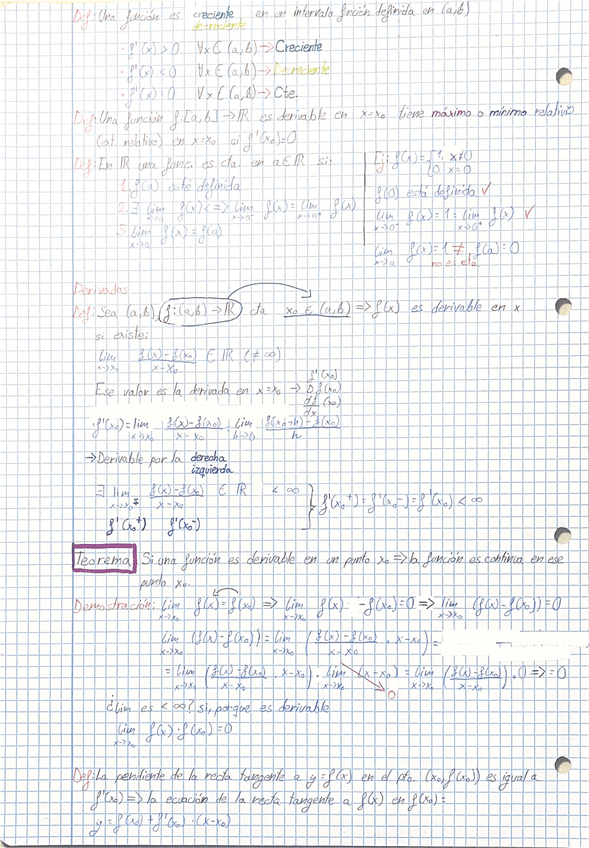 Def: Una función es creciente en un intervalo función definida en (a,b)
decreciente
- f'(x) > 0 ∀x ∈ (a,b) → Creciente
- f'(x) < 0 ∀x ∈ (a,b) → Decreciente
- f'(x) = 0 ∀x ∈ (a,b) → Cte.
Def: Una función f: [a,b] → ℝ es derivable en x=x₀ tiene máximo o mínimo relativo
(ext. relativo) en x=x₀ si f'(x₀)=0
Def: En ℝ una func. es cta. en a ∈ ℝ si:
1. f(a) está definida
2. ∃ lim x→a f(x) <=> lim x→a⁻ f(x) = lim x→a⁺ f(x)
3. lim x→a f(x) = f(a)
Ej: f(x) = { 1, x≠0
0 x=0
f(0) está definida ✓
lim x→0⁻ f(x) = 1 = lim x→0⁺ f(x) ✓
lim x→a f(x) = 1 ≠ f(a) = 0
no es cta.
Derivadas
Def: Sea (a,b), f: (a,b) → ℝ cta x₀ ∈ (a,b) => f(x) es derivable en x
si existe:
lim x→x₀ f(x)-f(x₀) / x-x₀ ∈ ℝ (≠ ∞)
Ese valor es la derivada en x=x₀ → f'(x₀)
D f(x₀)
df/dx (x₀)
· f'(x₀) = lim x→x₀ f(x)-f(x₀) / x-x₀ = lim h→0 f(x₀+h)-f(x₀) / h
→ Derivable por la derecha
izquierda
∃ lim x→x₀± f(x)-f(x₀) / x-x₀ ∈ ℝ < ∞ } f'(x₀⁺) = f'(x₀⁻) = f'(x₀) < ∞
f'(x₀⁺) f'(x₀⁻)
Teorema Si una función es derivable en un punto x₀ => la función es continua en ese
punto x₀.
Demostración: lim x→x₀ f(x) = f(x₀) => lim x→x₀ f(x) - f(x₀) = 0 => lim x→x₀ (f(x)-f(x₀)) = 0
lim x→x₀ (f(x)-f(x₀)) = lim x→x₀ ( f(x)-f(x₀) / x-x₀ · x-x₀ ) =
= lim x→x₀ ( f(x)-f(x₀) / x-x₀ · x-x₀ ) · lim x→x₀ (x-x₀) = lim x→x₀ ( f(x)-f(x₀) / x-x₀ ) · 0 => = 0
0
¿lim es < ∞? si, porque es derivable
lim x→x₀ f(x) · f(x₀) = 0
Def: La pendiente de la recta tangente a y=f(x) en el pto. (x₀, f(x₀)) es igual a
f'(x₀) => la ecuación de la recta tangente a f(x) en f(x₀) =
y = f(x₀) + f'(x₀) · (x-x₀)